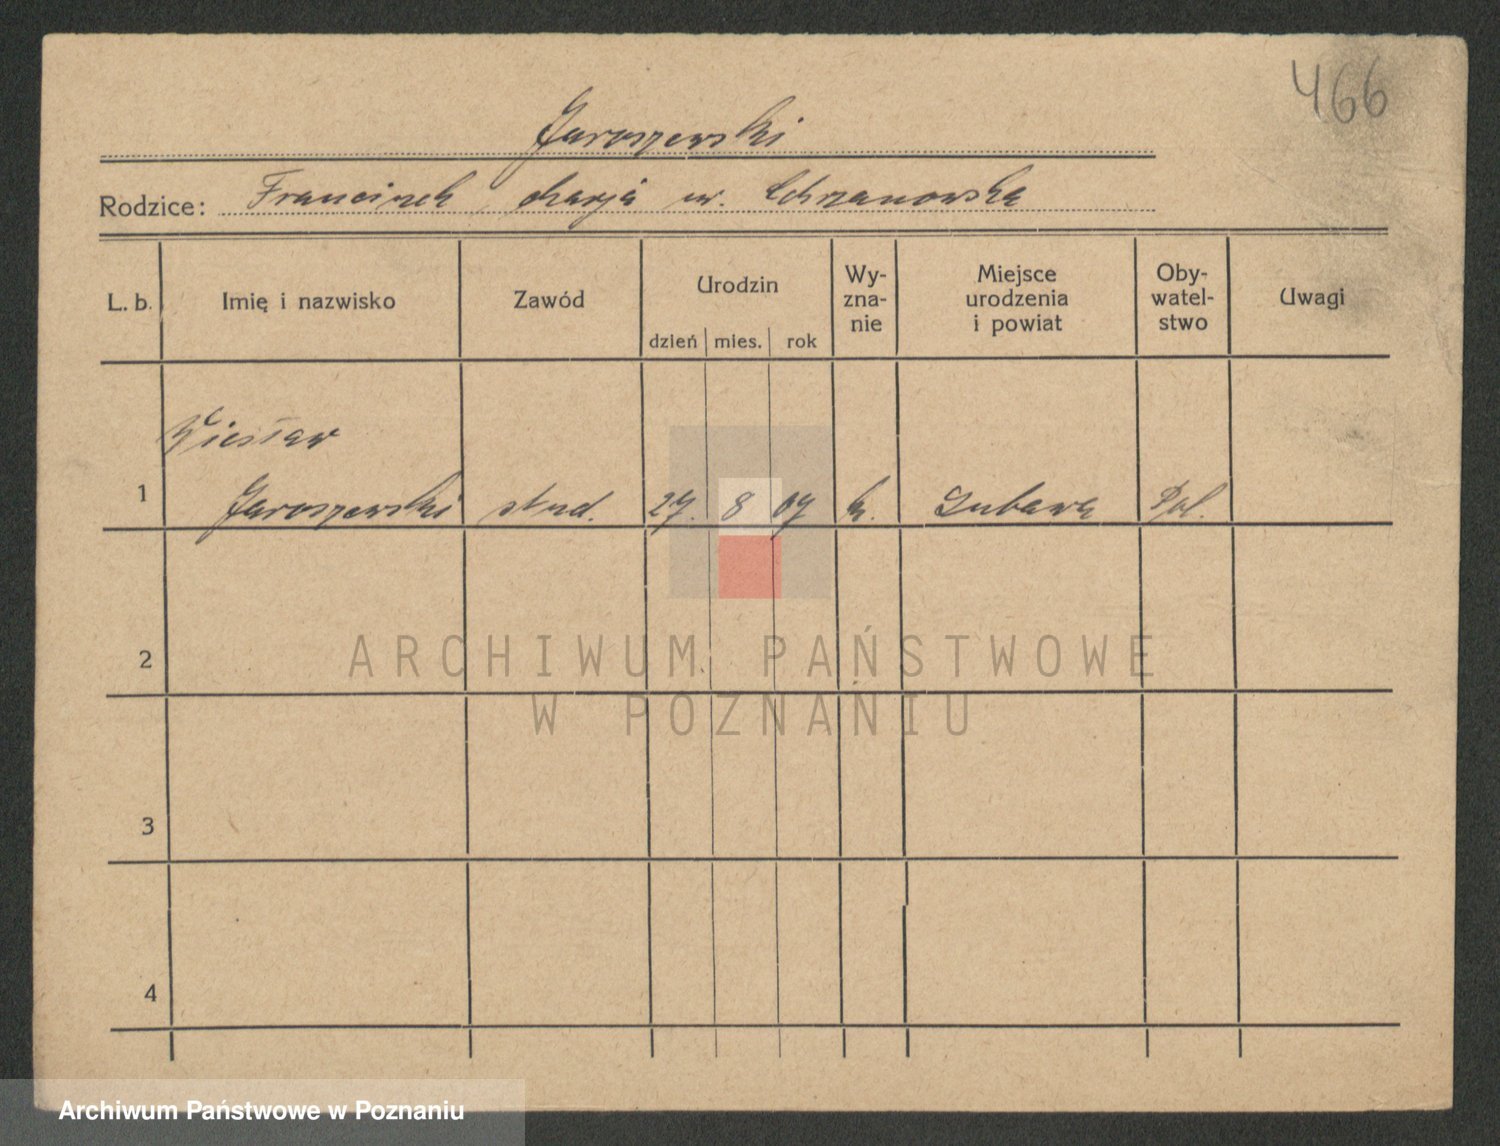 466
Jaroszewski
Rodzice: Franciszek, Marja ur. Chrzanowska
L. b.
Imię i nazwisko
Zawód
Urodzin
dzień mies. rok
Wy-
zna-
nie
Miejsce
urodzenia
i powiat
Oby-
watel-
stwo
Uwagi
Wiesław
1 Jaroszewski stud. 27. 8 07 k. Lubawa Pol.
2
3
4
ARCHIWUM PAŃSTWOWE
W POZNANIU
Archiwum Państwowe w Poznaniu